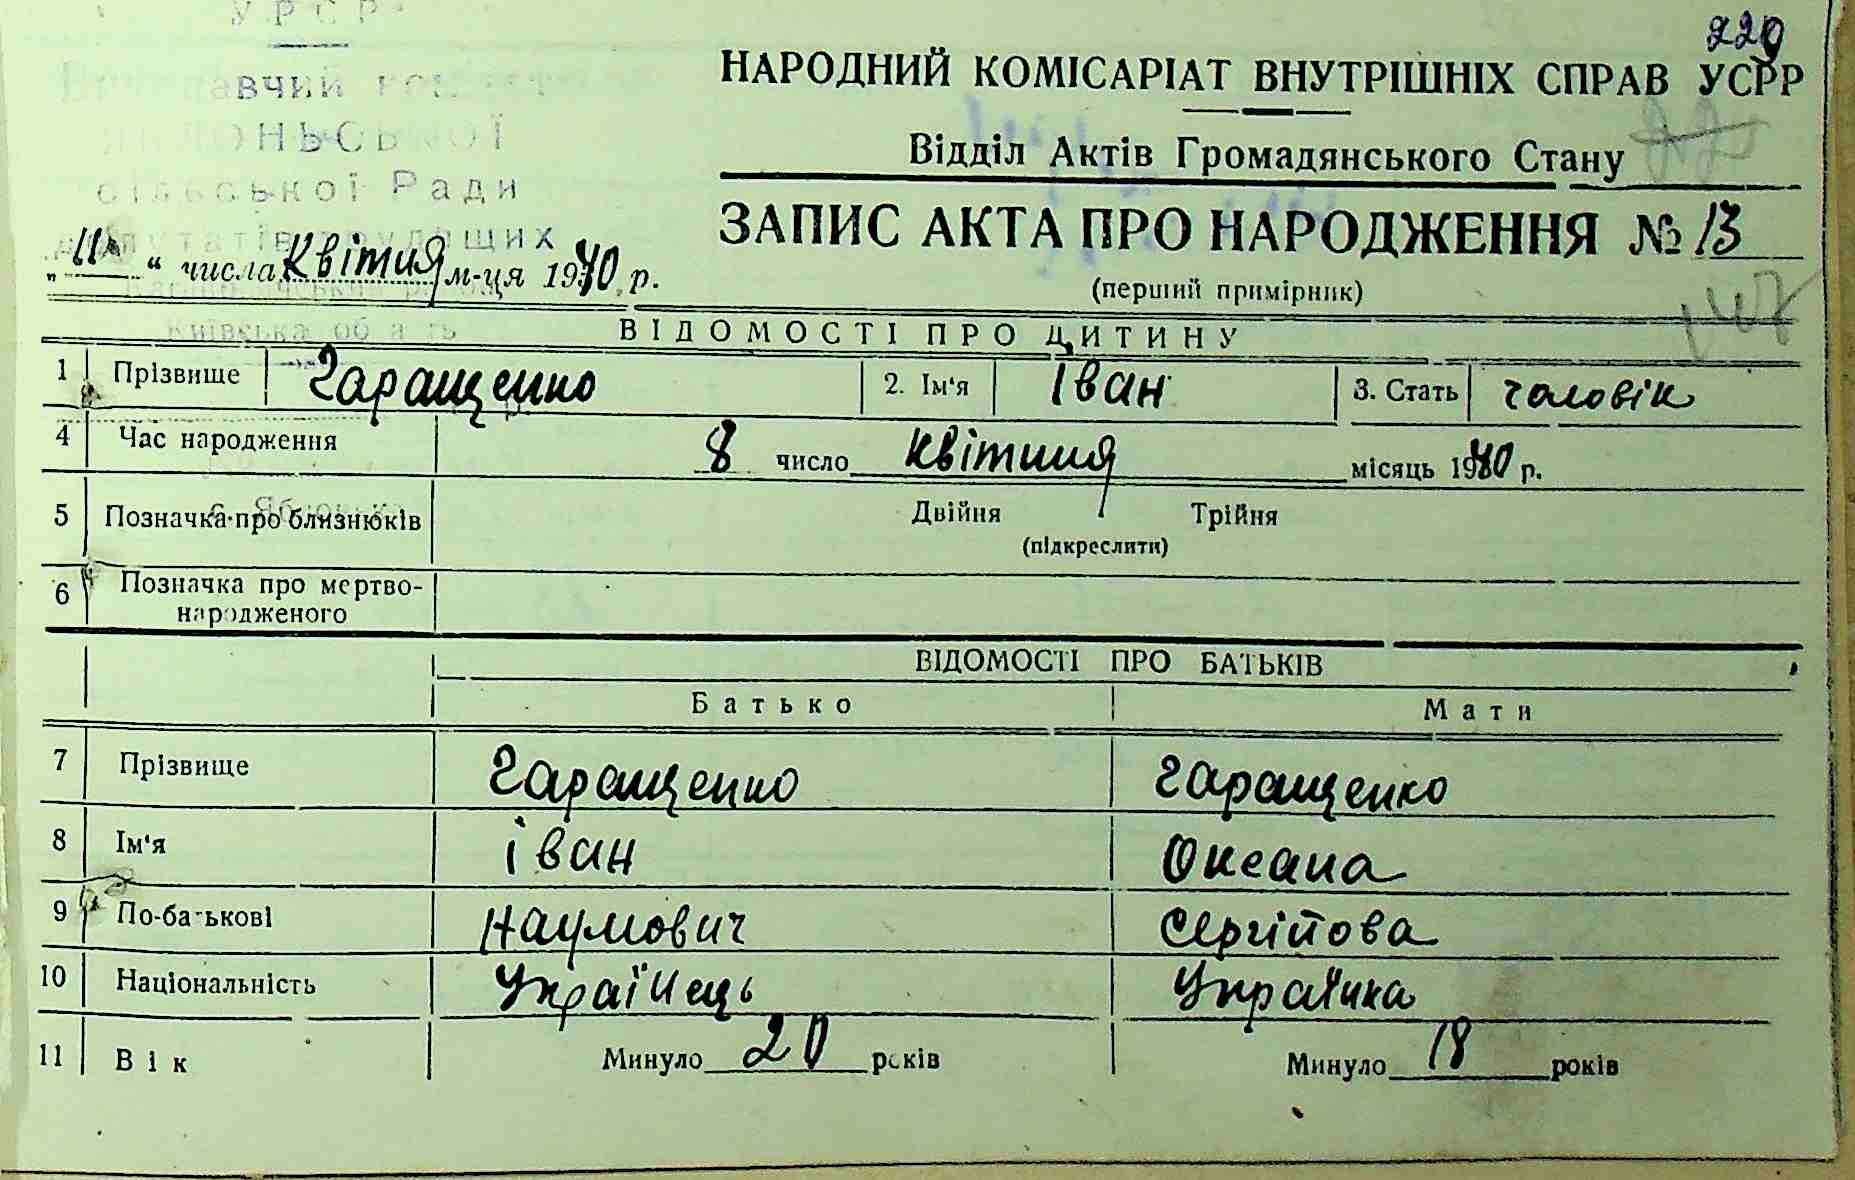 УРСР
Виконавчий комітет
ської
сільської Ради
депутатів трудящих
Київська область
с. Яблонька
220
147
НАРОДНИЙ КОМІСАРІАТ ВНУТРІШНІХ СПРАВ УСРР
Відділ Актів Громадянського Стану
ЗАПИС АКТА ПРО НАРОДЖЕННЯ № 13
(перший примірник)
„11“ числа Квітня м-ця 1940 р.
ВІДОМОСТІ ПРО ДИТИНУ
1 Прізвище Гаращенко 2. Ім'я Іван 3. Стать чоловік
4 Час народження 8 число Квітння місяць 1940 р.
5 Позначка про близнюків Двійня Трійня
(підкреслити)
6 Позначка про мертво-
народженого
ВІДОМОСТІ ПРО БАТЬКІВ
Батько Мати
7 Прізвище Гаращенко Гаращенко
8 Ім'я Іван Оксана
9 По-батькові Наумович Сергійова
10 Національність Українець Українка
11 Вік Минуло 20 років Минуло 18 років